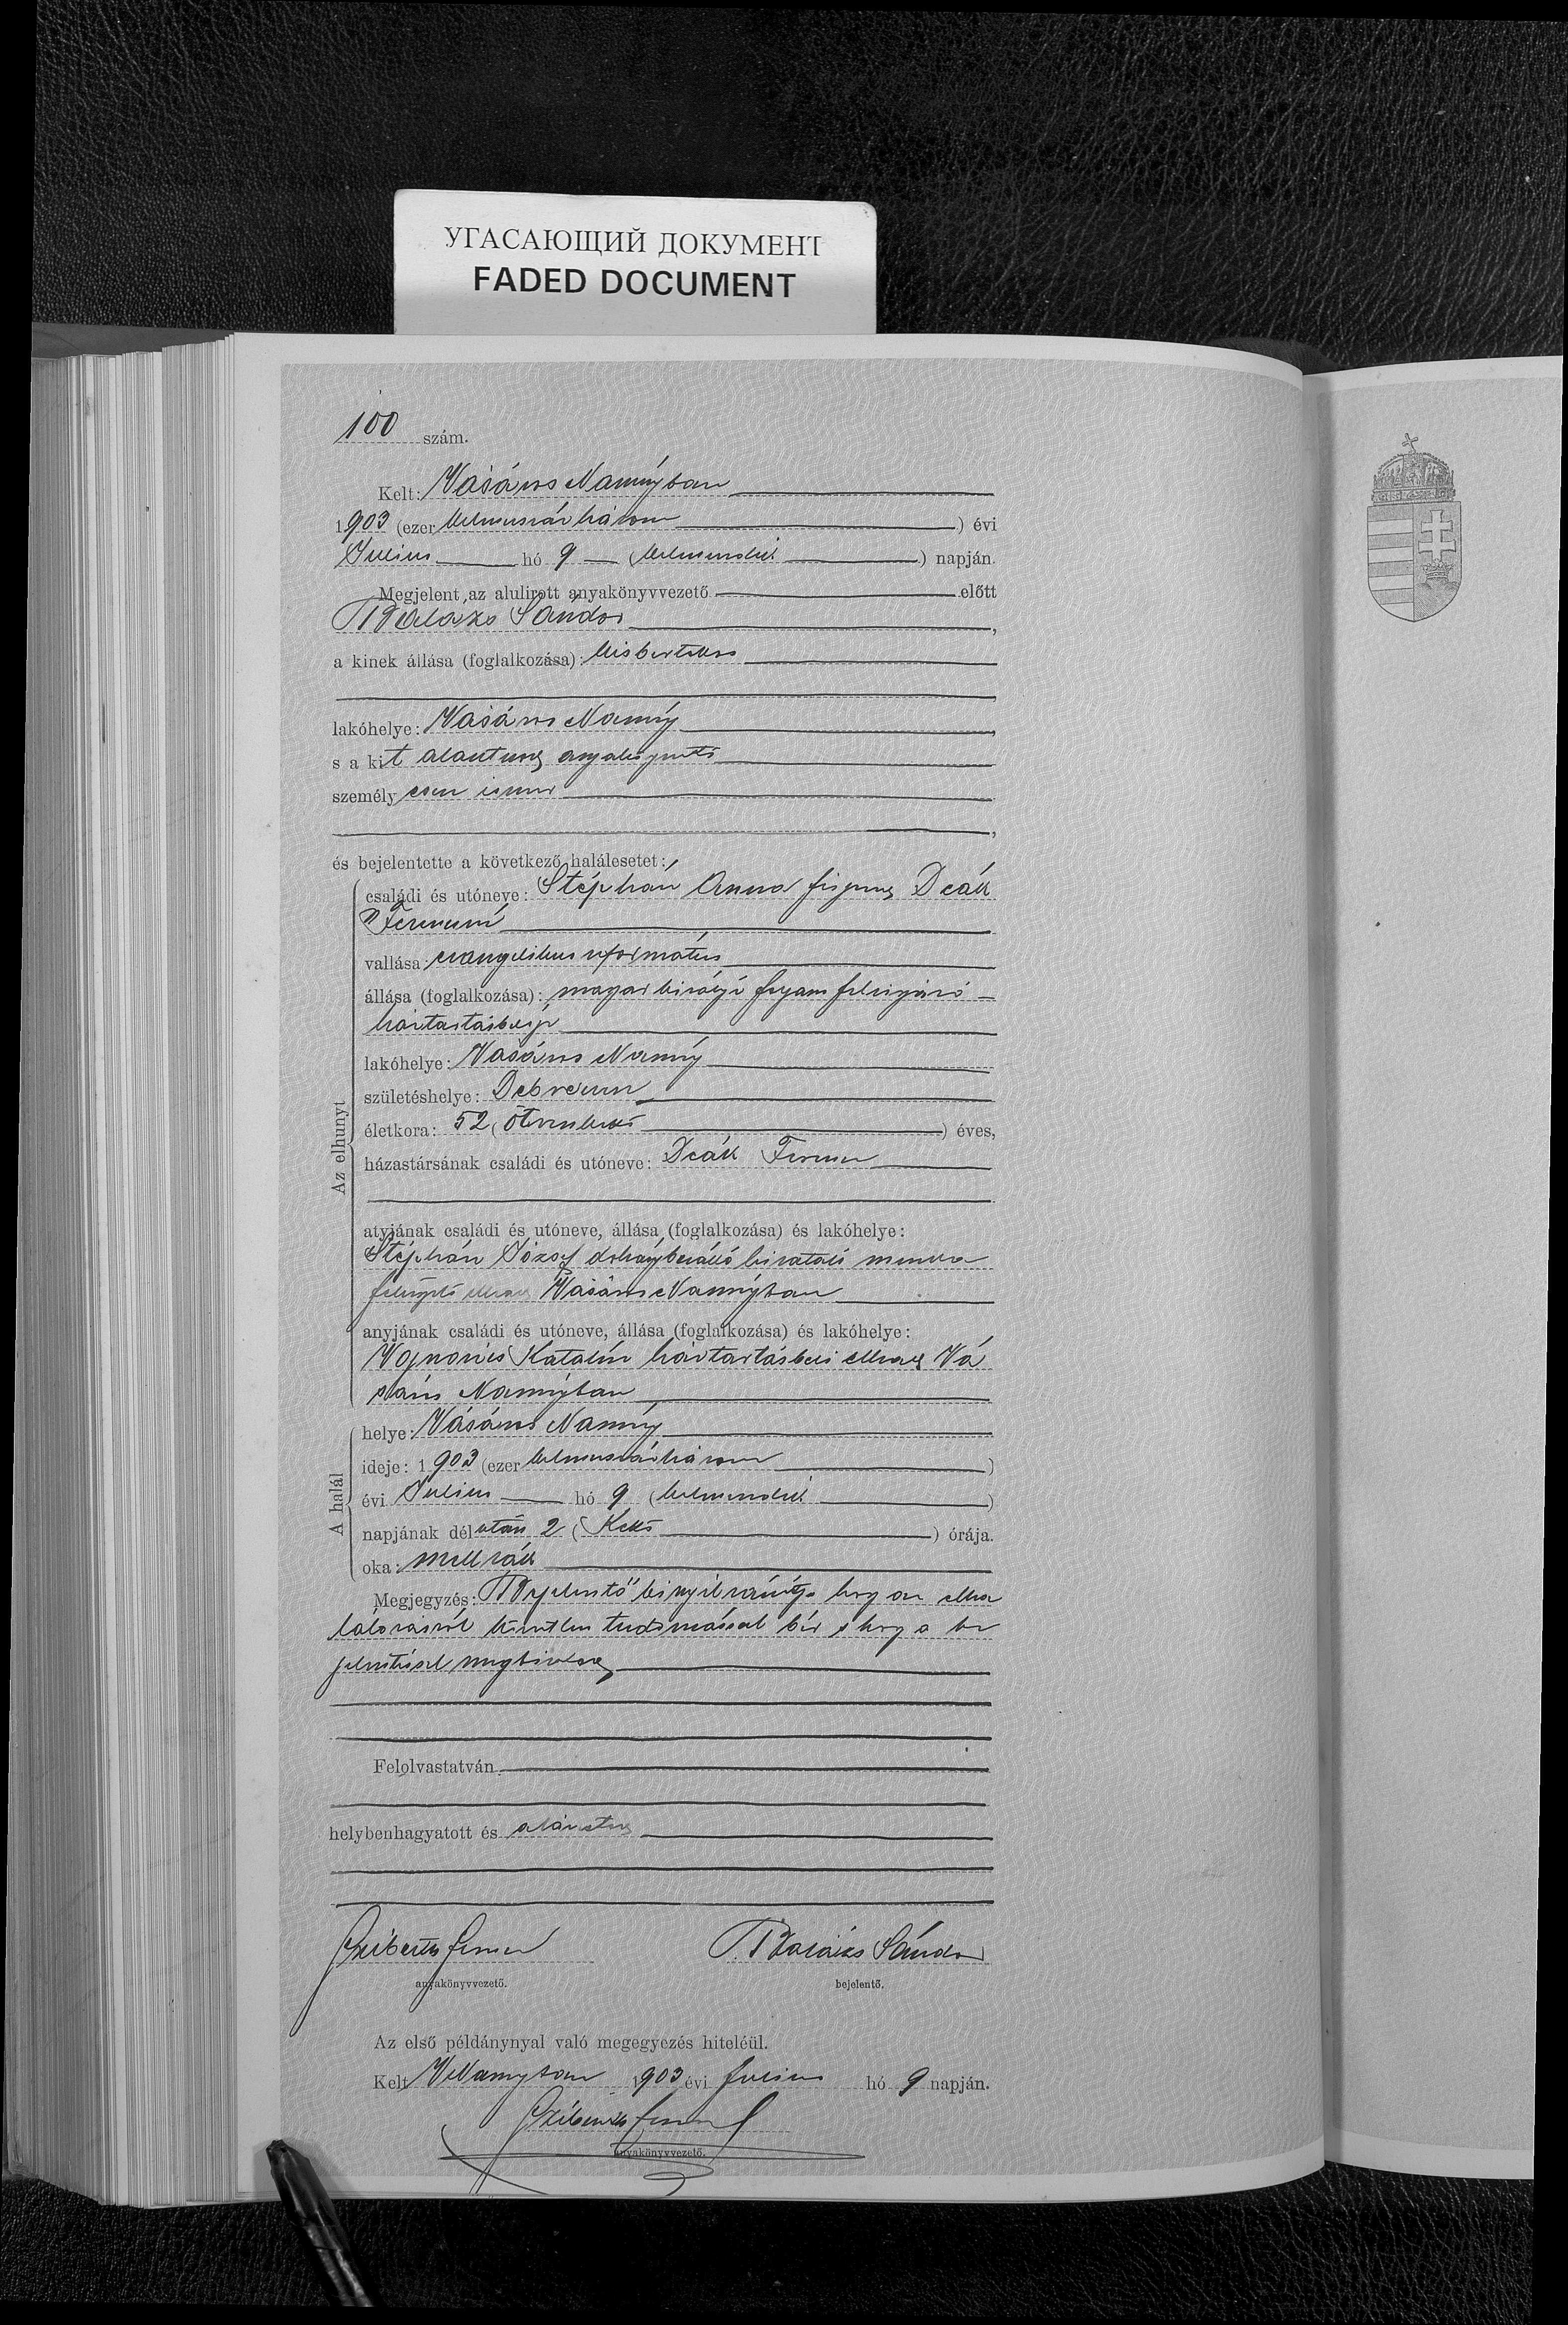 УГАСАЮЩИЙ ДОКУМЕНТ
FADED DOCUMENT
100 szám.
Kelt: Vásáros Naményban
1903 (ezer kilenczszázhárom) évi
Julius hó 9 (kilenczedik) napján.
Megjelent az alulirott anyakönyvvezető előtt
Balázs Sándor,
a kinek állása (foglalkozása): kisbirtokos
lakóhelye: Vásáros Namény,
s a kit alantirott anyakönyvvezető
személyesen ismer,
és bejelentette a következő halálesetet:
Az elhunyt
családi és utóneve: Stéphán Anna férjezett Deák
Ferenczné
vallása: evangelikus református
állása (foglalkozása): magyar királyi folyam felvigyázó
háztartásbeli
lakóhelye: Vásáros Namény
születéshelye: Debreczen
életkora: 52 (ötvenkettő) éves,
házastársának családi és utóneve: Deák Ferencz
atyjának családi és utóneve, állása (foglalkozása) és lakóhelye:
Stéphán József dohánybeváltó hivatali munka
felügyelő Vásáros Naményban
anyjának családi és utóneve, állása (foglalkozása) és lakóhelye:
Vojnovics Katalin háztartásbeli elhalt Vá
sáros Naményban
A halál
helye: Vásáros Namény
ideje: 1903 (ezer kilenczszázhárom)
évi Julius hó 9 (kilenczedik)
napjának délután 2 (Kettő) órája.
oka: mellrák
Megjegyzés: Bejelentő kinyilvánítja hogy az elha
lálozásról közvetlen tudomással bír s hogy a be
jelentéssel megbízatott
Felolvastatván
helybenhagyatott és aláíratott
Ferencz
Balázs Sándor
anyakönyvvezető.
bejelentő.
Az első példánynyal való megegyezés hiteléül.
Kelt VNaményban 1903 évi Julius hó 9 napján.
Ferencz
anyakönyvvezető.